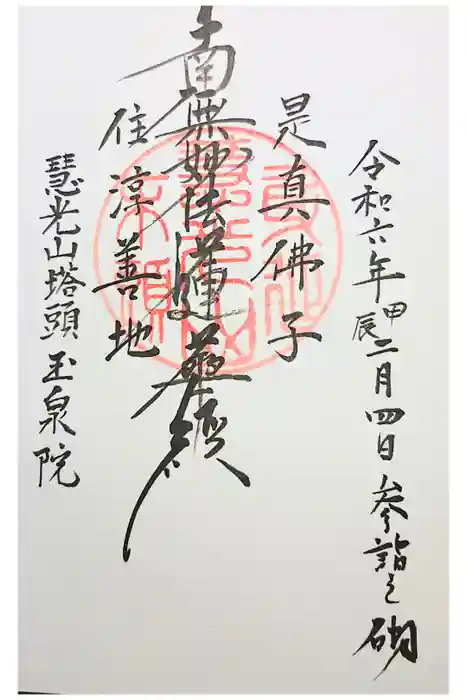 令和六年甲辰二月四日 参詣之砌
是真佛子
南無妙法蓮華経
住淳善地
慧光山塔頭 玉泉院